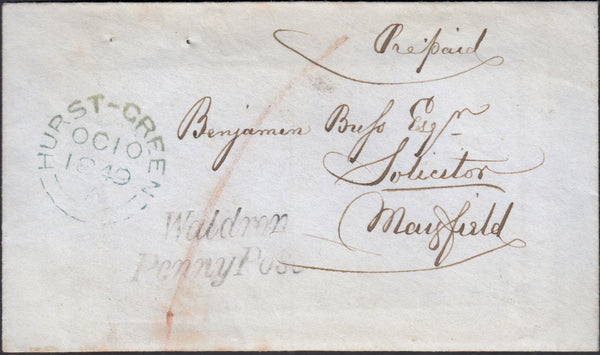 Prepaid
HURST-GREEN
OC 10
1840
Benjamin Buss Esqr.
Solicitor
Mayfield
Waldron
Penny Post